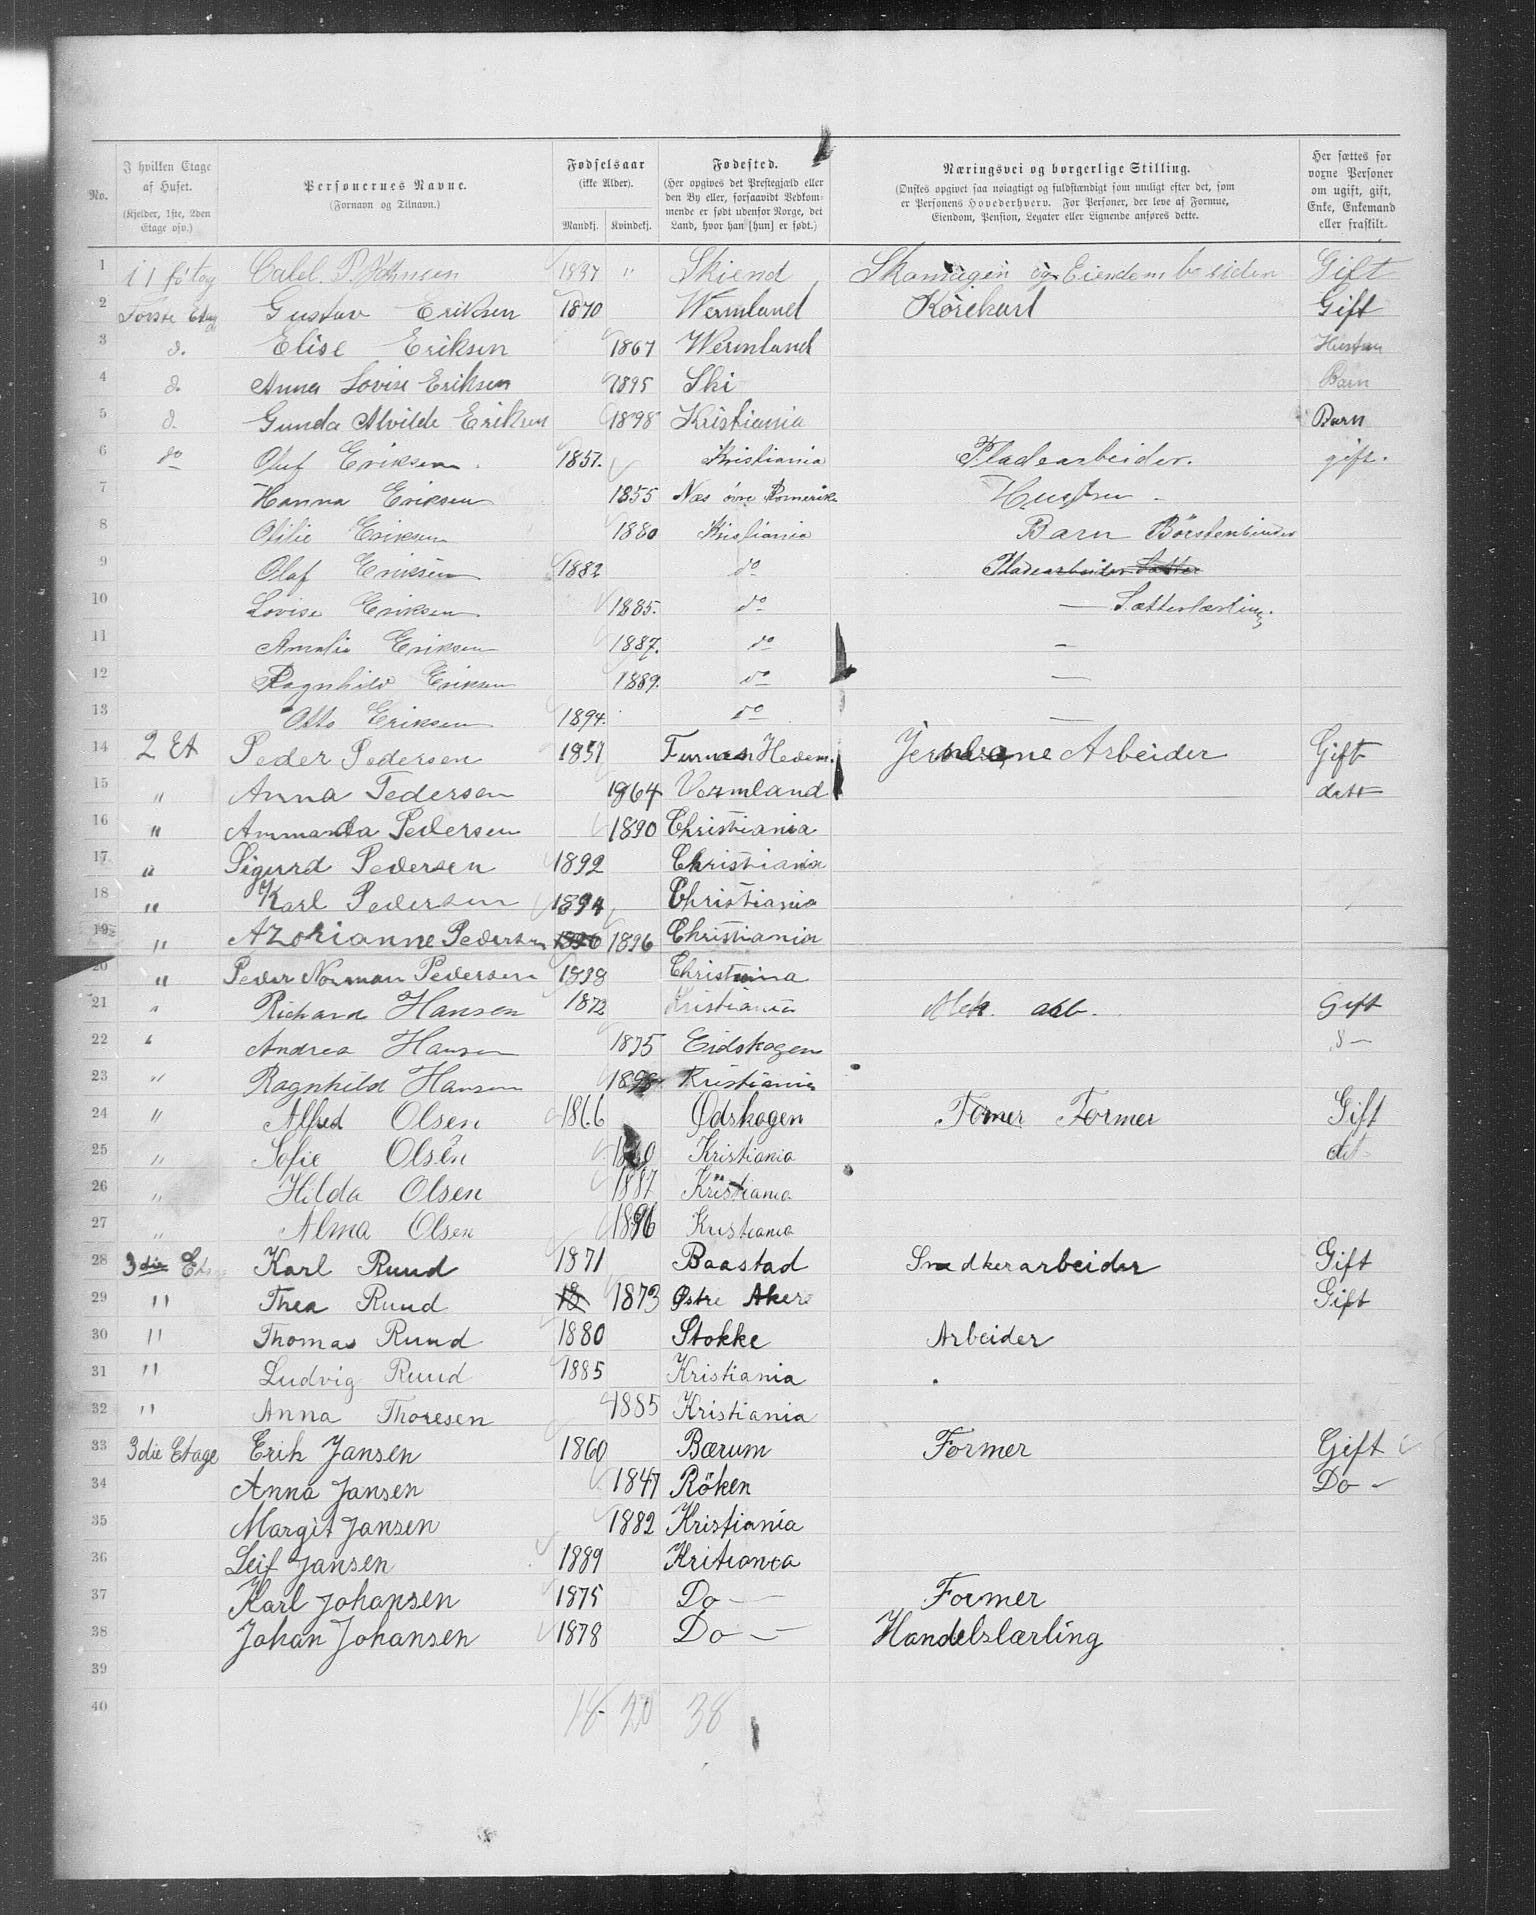 No.
I hvilken Etage af Huset.
(Kjelder, 1ste, 2den Etage osv.)
Personernes Navne.
(Fornavn og Tilnavn.)
Fødselsaar
(ikke Alder).
Mandkj. Kvindekj.
Fødested.
(Her opgives det Prestegjæld eller den By eller, forsaavidt Vedkommende er født udenfor Norge, det Land, hvor han [hun] er født.)
Næringsvei og borgerlige Stilling.
(Ønskes opgivet saa nøiagtigt og fuldstændigt som muligt efter det, som er Personens Hovederhverv. For Personer, der leve af Formue, Eiendom, Pension, Legater eller Lignende anføres dette.
Her sættes for voxne Personer om ugift, gift, Enke, Enkemand eller fraskilt.
1 i 1 P. Johnsen 1837 " Skiend Eiendomsbesidder Gift
2 Første Gustav Eriksen 1870 Wermland Kørekarl Gift
3 d. Elise Eriksen 1867 Wermland Hustru
4 d. Anna Lovise Eriksen 1895 Ski Barn
5 d. Gunda Alvilde Eriksen 1898 Kristiania Barn
6 do Oluf Eriksen 1857. Kristiania Pladearbeider. gift.
7 Hanna Eriksen 1855 Næs øvre Romerike Hustru
8 Otilie Eriksen 1880 Kristiania Barn Börstenbinder
9 Olaf Eriksen 1882 do Pladearbeider
10 Lovise Eriksen 1885. do — Sætterlærling.
11 Amalie Eriksen 1887. do —
12 Ragnhild Eriksen 1889. do —
13 Otto Eriksen 1894. do —
14 2 Et Peder Pedersen 1851 Furnes Hedem. Jernbane Arbeider Gift
15 " Anna Pedersen 1864 Vermland dett
16 " Ammanda Pedersen 1890 Christiania
17 " Sigurd Pedersen 1892 Christiania
18 " Karl Pedersen 1894 Christiania
19 " Azorianne Pedersen 1896 1896 Christiania
20 " Peder Norman Pedersen 1898 Christiania
21 " Richard Hansen 1872 Kristiania Mek. arb. Gift
22 " Andrea Hansen 1875 Eidskogen
23 " Ragnhild Hansen 1898 Kristiania
24 " Alfred Olsen 1866 Ødskogen Former Former Gift
25 " Sofie Olsen Kristiania det
26 " Hilda Olsen 1887 Kristiania
27 " Alma Olsen 1896 Kristiania
28 3die Etage Karl Ruud 1871 Baastad Snedkerarbeider Gift
29 " Thea Ruud 18 1873 Østre Aker Gift
30 " Thomas Ruud 1880 Stokke Arbeider
31 " Ludvig Ruud 1885 Kristiania
32 " Anna Thoresen 1885 Kristiania
33 3die Etage Erik Jansen 1860 Bærum Former Gift
34 Anna Jansen 1847 Röken Do —
35 Margit Jansen 1882 Kristiania
36 Leif Jansen 1889 Kritiania
37 Karl Johansen 1875 Do — Former
38 Johan Johansen 1878 Do — Handelslærling
39
40
18 20 38